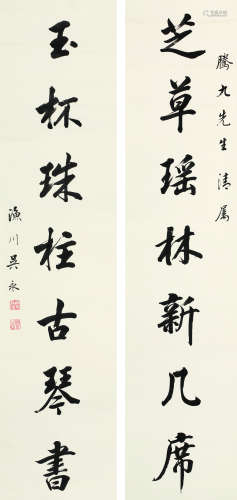 芝草瑶林新几席
腾九先生清属
玉杯珠柱古琴書
渔川吴永